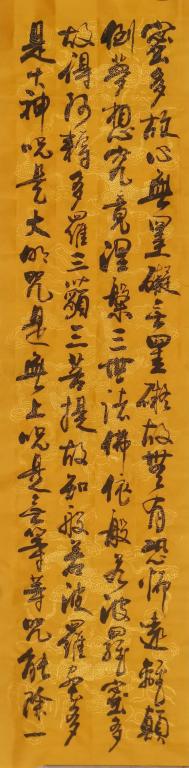 蜜多故心無罣礙無罣礙故無有恐怖遠離顛
倒夢想究竟涅槃三世諸佛依般若波羅蜜多
故得阿耨多羅三藐三菩提故知般若波羅蜜多
是大神咒是大明咒是無上咒是無等等咒能除一